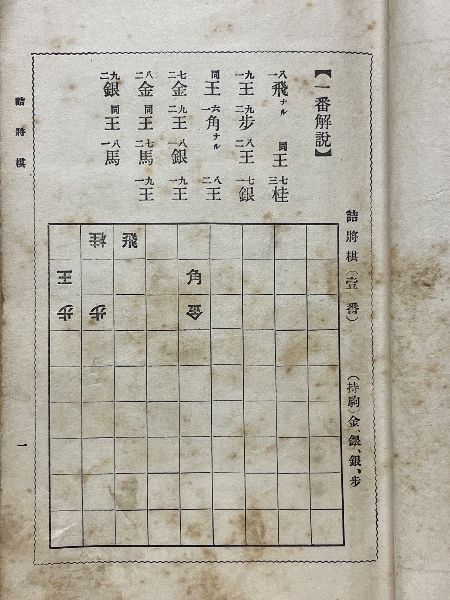 詰將棋（壹番）
（持駒）金、銀、銀、步
【一番解說】
八一飛ナル 同王 七三桂
九一王 九二步 八二王 七一銀
同王 六一角ナル 八二王
七二金 九二王 八一銀 九一王
八二金 同王 七二馬 九一王
九二銀 同王 八一馬
桂 飛
王 角
步 步 金
詰將棋
一